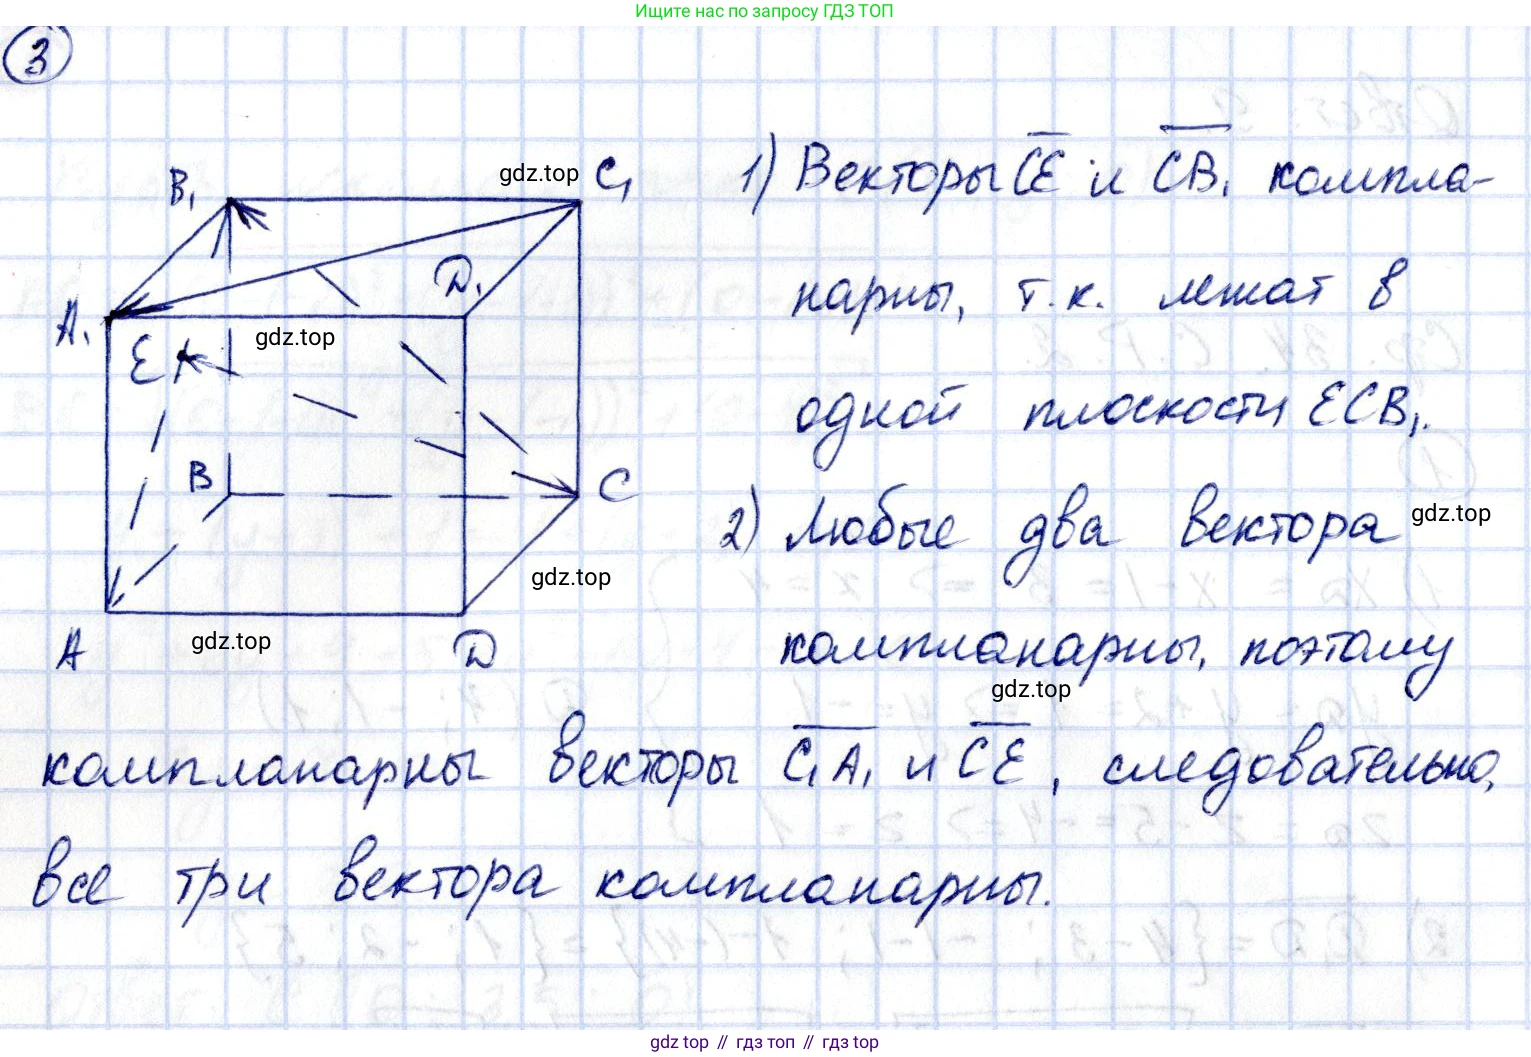 Ищите нас по запросу ГДЗ ТОП
3
B₁
C₁
gdz.top
A₁
D₁
E
gdz.top
B
C
gdz.top
A
gdz.top
D
1) Векторы C̅E̅ и C̅B̅₁ компла-
нарны, т.к. лежат в
одной плоскости ECB₁.
2) Любые два вектора
gdz.top
компланарны, поэтому
gdz.top
компланарны векторы C̅₁A̅₁ и C̅E̅, следовательно,
все три вектора компланарны.
gdz.top // гдз топ // гдз top